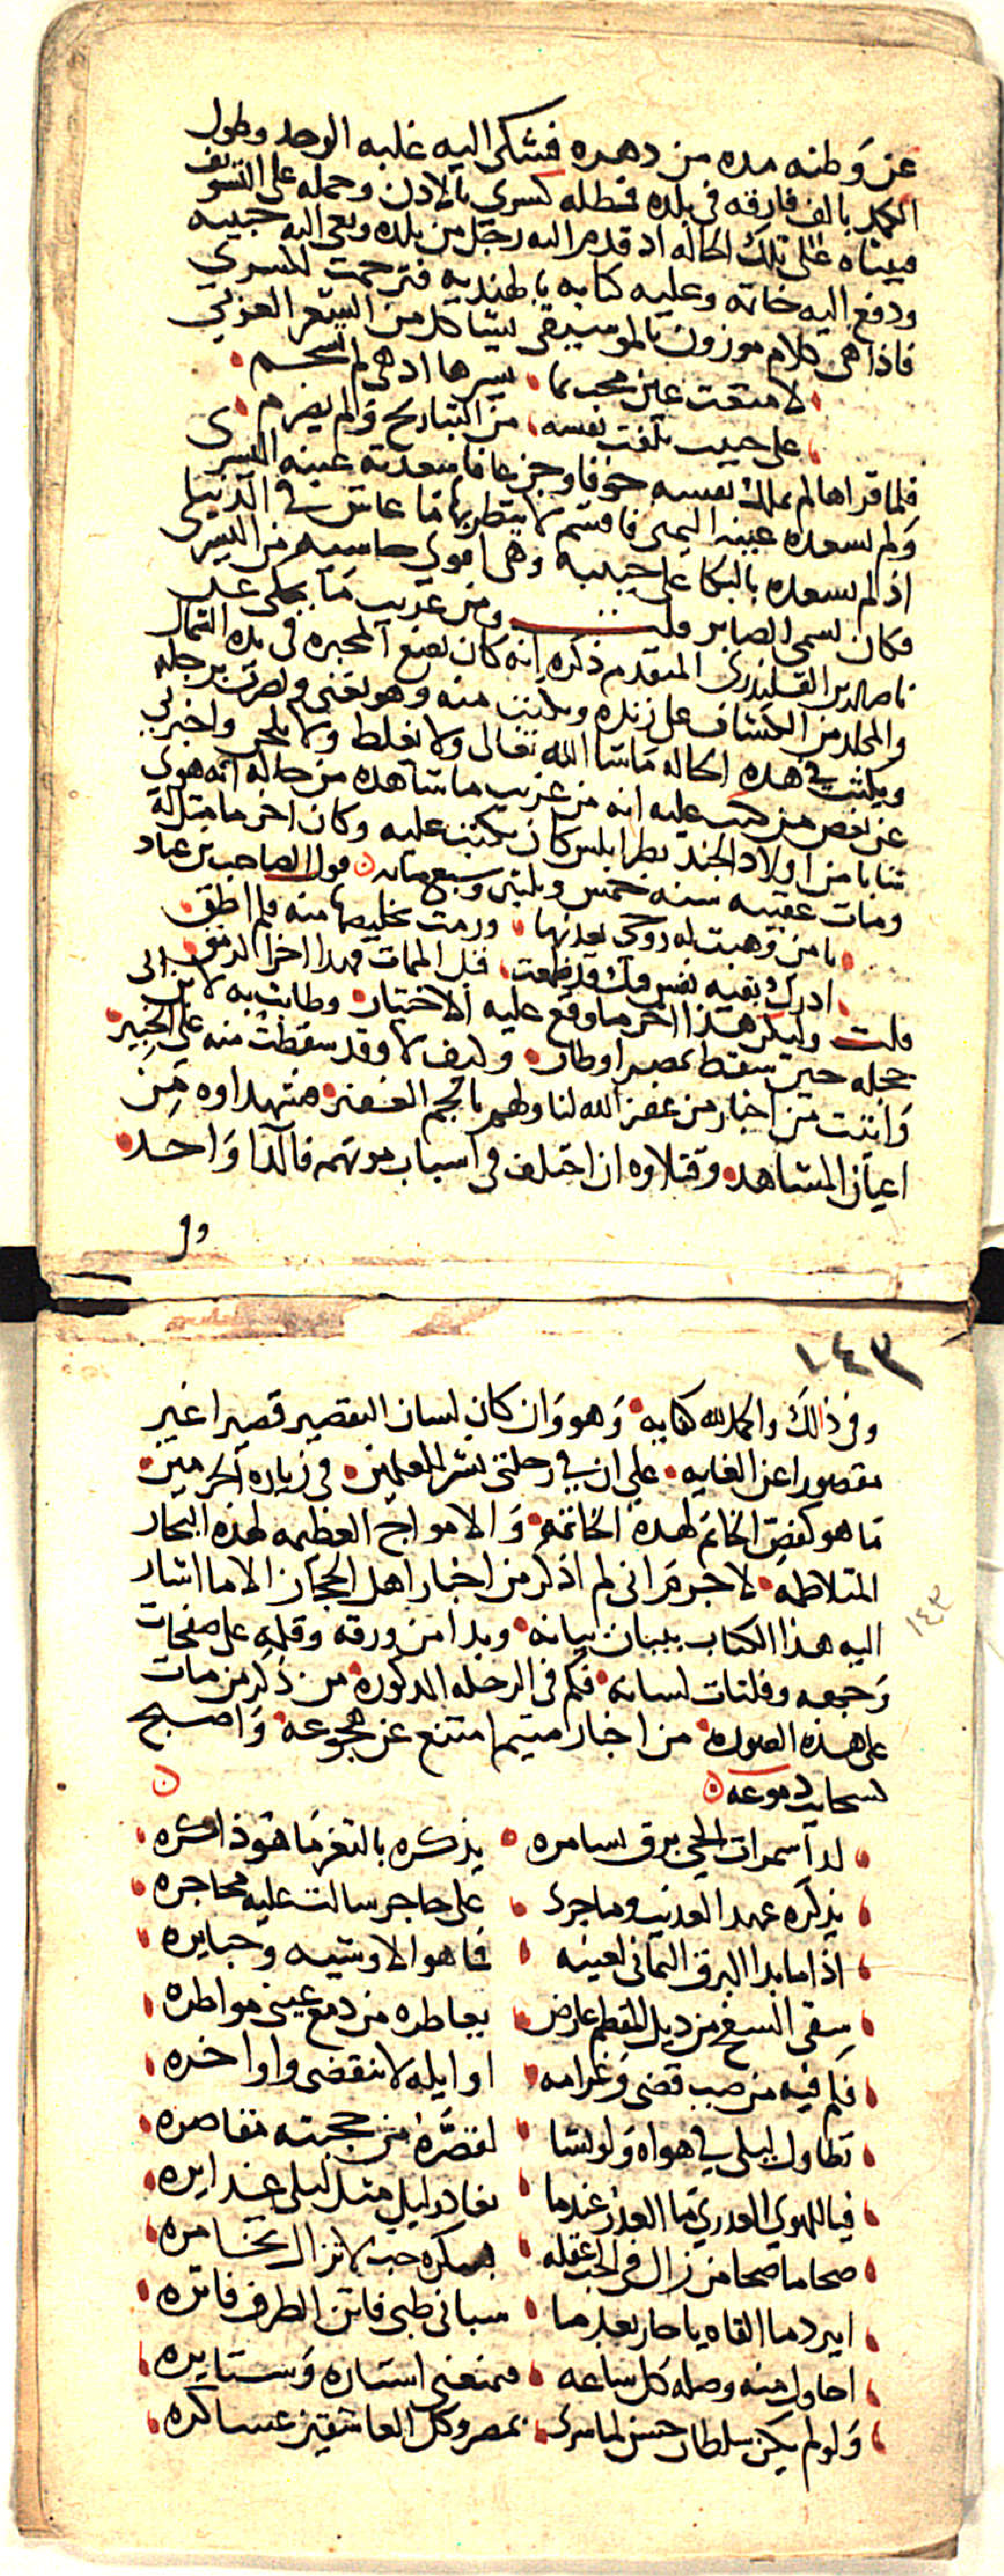 عن وطنه مده من دهره فشكى اليه غلبه الوجد وطول
الكمد بالف فارقه في بلده فمطله كسرى بالاذن وحمله على التسويف
فبيناه على تلك الحاله اذ قدم اليه رجل من بلده ونعى اليه حبيبه
ودفع اليه خاتمه وعليه كتابه بالهنديه فترجمت لكسرى
فاذا هى كلام موزون بالموسيقى يشاكل من الشعر العربي
لا متعت عين محب بما يسرها اذ هي لم تسجم
على حبيب تلفت نفسه من التباريح ولم يصرم
فلما قراها لم يملك نفسه خوفا وجزعا فاسعدته عينه اليسرى
ولم تسعده عينه اليمنى فاقسم لا ينظر بها ما عاش في الدنيا
اذ لم تسعده بالبكا على حبيبه وهى اقوى حاسيه من اليسرى
فكان يسمى الصابر قلت ومن غريب ما يحكى عن
ناصر الدين القلندرى المتقدم ذكره انه كان يضع المحبره في يده الشمال
والمجلد من الكشاف على زنده ويكتب منه وهو يغني ويضرب برجله
ويكتب في هذه الحاله ما شا الله تعالى ولا يغلط ولا يلحن واخبرنى
عن بعض من كتب عليه انه من غريب ما شاهده من حاله انه هوى
شابا من اولاد الجند بطرابلس كان يكتب عليه وكان اخر ما مثل له
ومات عقيبه سنه خمس وثلثين وسبع مايه قول الصاحب بن عباد
يا من وهبت له روحى فعذبها ورمت تخليصها منه فلم اطق
ادرك بقيه نفس فيك قد تلفت قبل الممات فهذا اخر الرمق
قلت وليكن هذا اخر ما وقع عليه الاختيار وطابت به لابن ابى
حجله حين سقط بمصر اوطار وكيف لا وقد سقطت منه على الخبير
وانبت من اخبار من غفر الله لنا ولهم بالجم الغفير فشهداوه من
اعيان المشاهد وقتلاوه ان اختلف في اسباب موتهم فالدا واحد
وفى
١٤٣
وفى ذلك والحمد لله كفايه وهو وان كان لسان التقصير قصيرا غير
مقصور عن الغايه على ان في رحلتى نشر العلمين في زياره الحرمين
ما هو كفص الخاتم لهذه الخاتمه والامواج العظيمه لهذه البحار
المتلاطمه لا جرم انى لم اذكر من اخبار اهل الحجاز الا ما اشار
اليه هذا الكتاب ببيان بيانه وبدا من ورقه وقلمه على صفحات
وجهه وفلتات لسانه فكم في الرحله المذكوره من ذكر من مات
على هذه الصوره من اخبار متيم امتنع عن هجوعه واصبح
لسحايب دموعه
لدا سمرات الحي برق يسامره يذكره بالثغر ما هو ذاكره
يذكره عهد العذيب وما جرى على حاجر سالت عليه محاجره
اذا ما بدا البرق اليماني لعينه فما هو الا وشيه وحبايره
سقى السفح من ذيل المقطم عارض يعاطره من دمع عيني مواطره
فكم فيه من صب قضى وغرامه اوايله لا تنقضى واواخره
تطاول ليلى في هواه ولو يشا لقصره من حجبته مقاصره
فيا للهوى العذرى ما العذر عندما تغادر ليل مثل ليلى غدايره
صحا ما صحا من زال في الحب عقله بسكره حب لا تزال تخامره
ايبرد ما القاه يا حار بعدما سباني ظبى فاتن الطرف فاتره
احاول منه وصله كل ساعه فيمنعنى استاره وستايره
ولو لم يكن سلطان حسن لما سرى بمصر وكل العاشقين عساكره
١٤٣